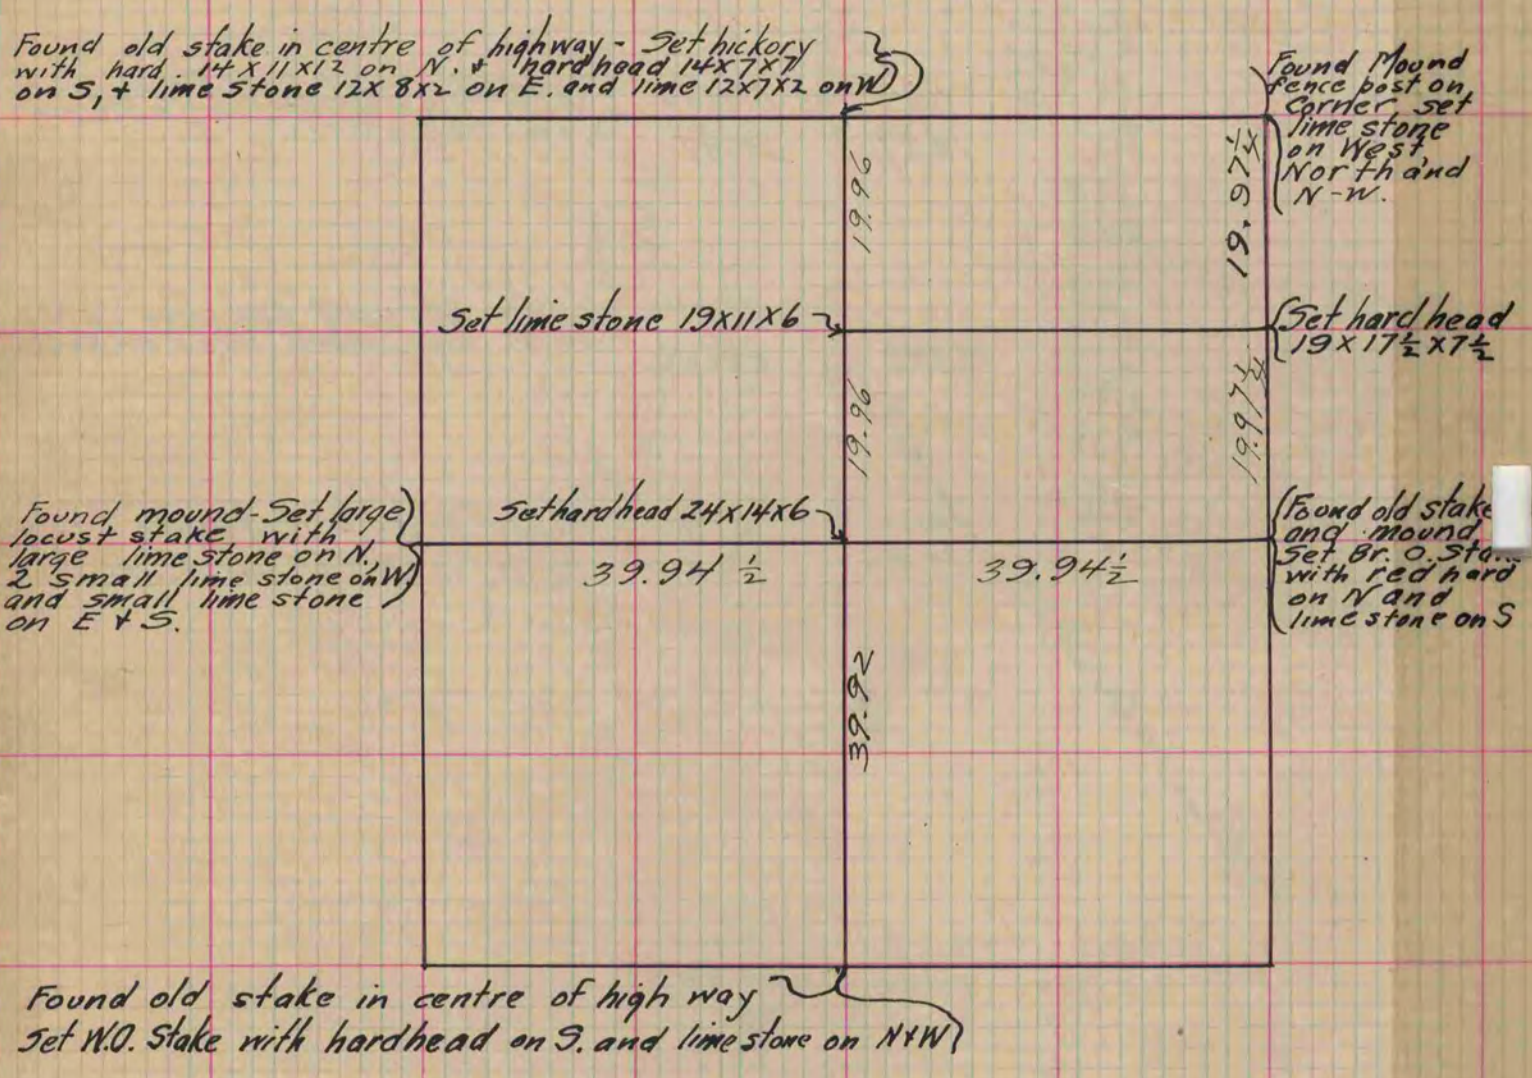 Found old stake in centre of highway - Set hickory
with hard. 14 X 11 X 12 on N. & hardhead 14X7X7
on S, & lime stone 12X 8X2 on E. and lime 12X7X2 on W
Found Mound
fence post on
corner, set
lime stone
on West
North and
N-W.
19.96
19.97 1/4
Set lime stone 19X11X6
Set hard head
19 X 17 1/2 X 7 1/2
19.96
19.97 1/4
Found mound-Set large
locust stake with
large lime stone on N.,
2 small lime stone on W
and small lime stone
on E & S.
Set hard head 24X14X6
Found old stake
and mound
Set Br. O.
with red hard
on N and
lime stone on S
39.94 1/2
39.94 1/2
39.92
Found old stake in centre of high way
Set W.O. Stake with hardhead on S. and lime stone on N & W